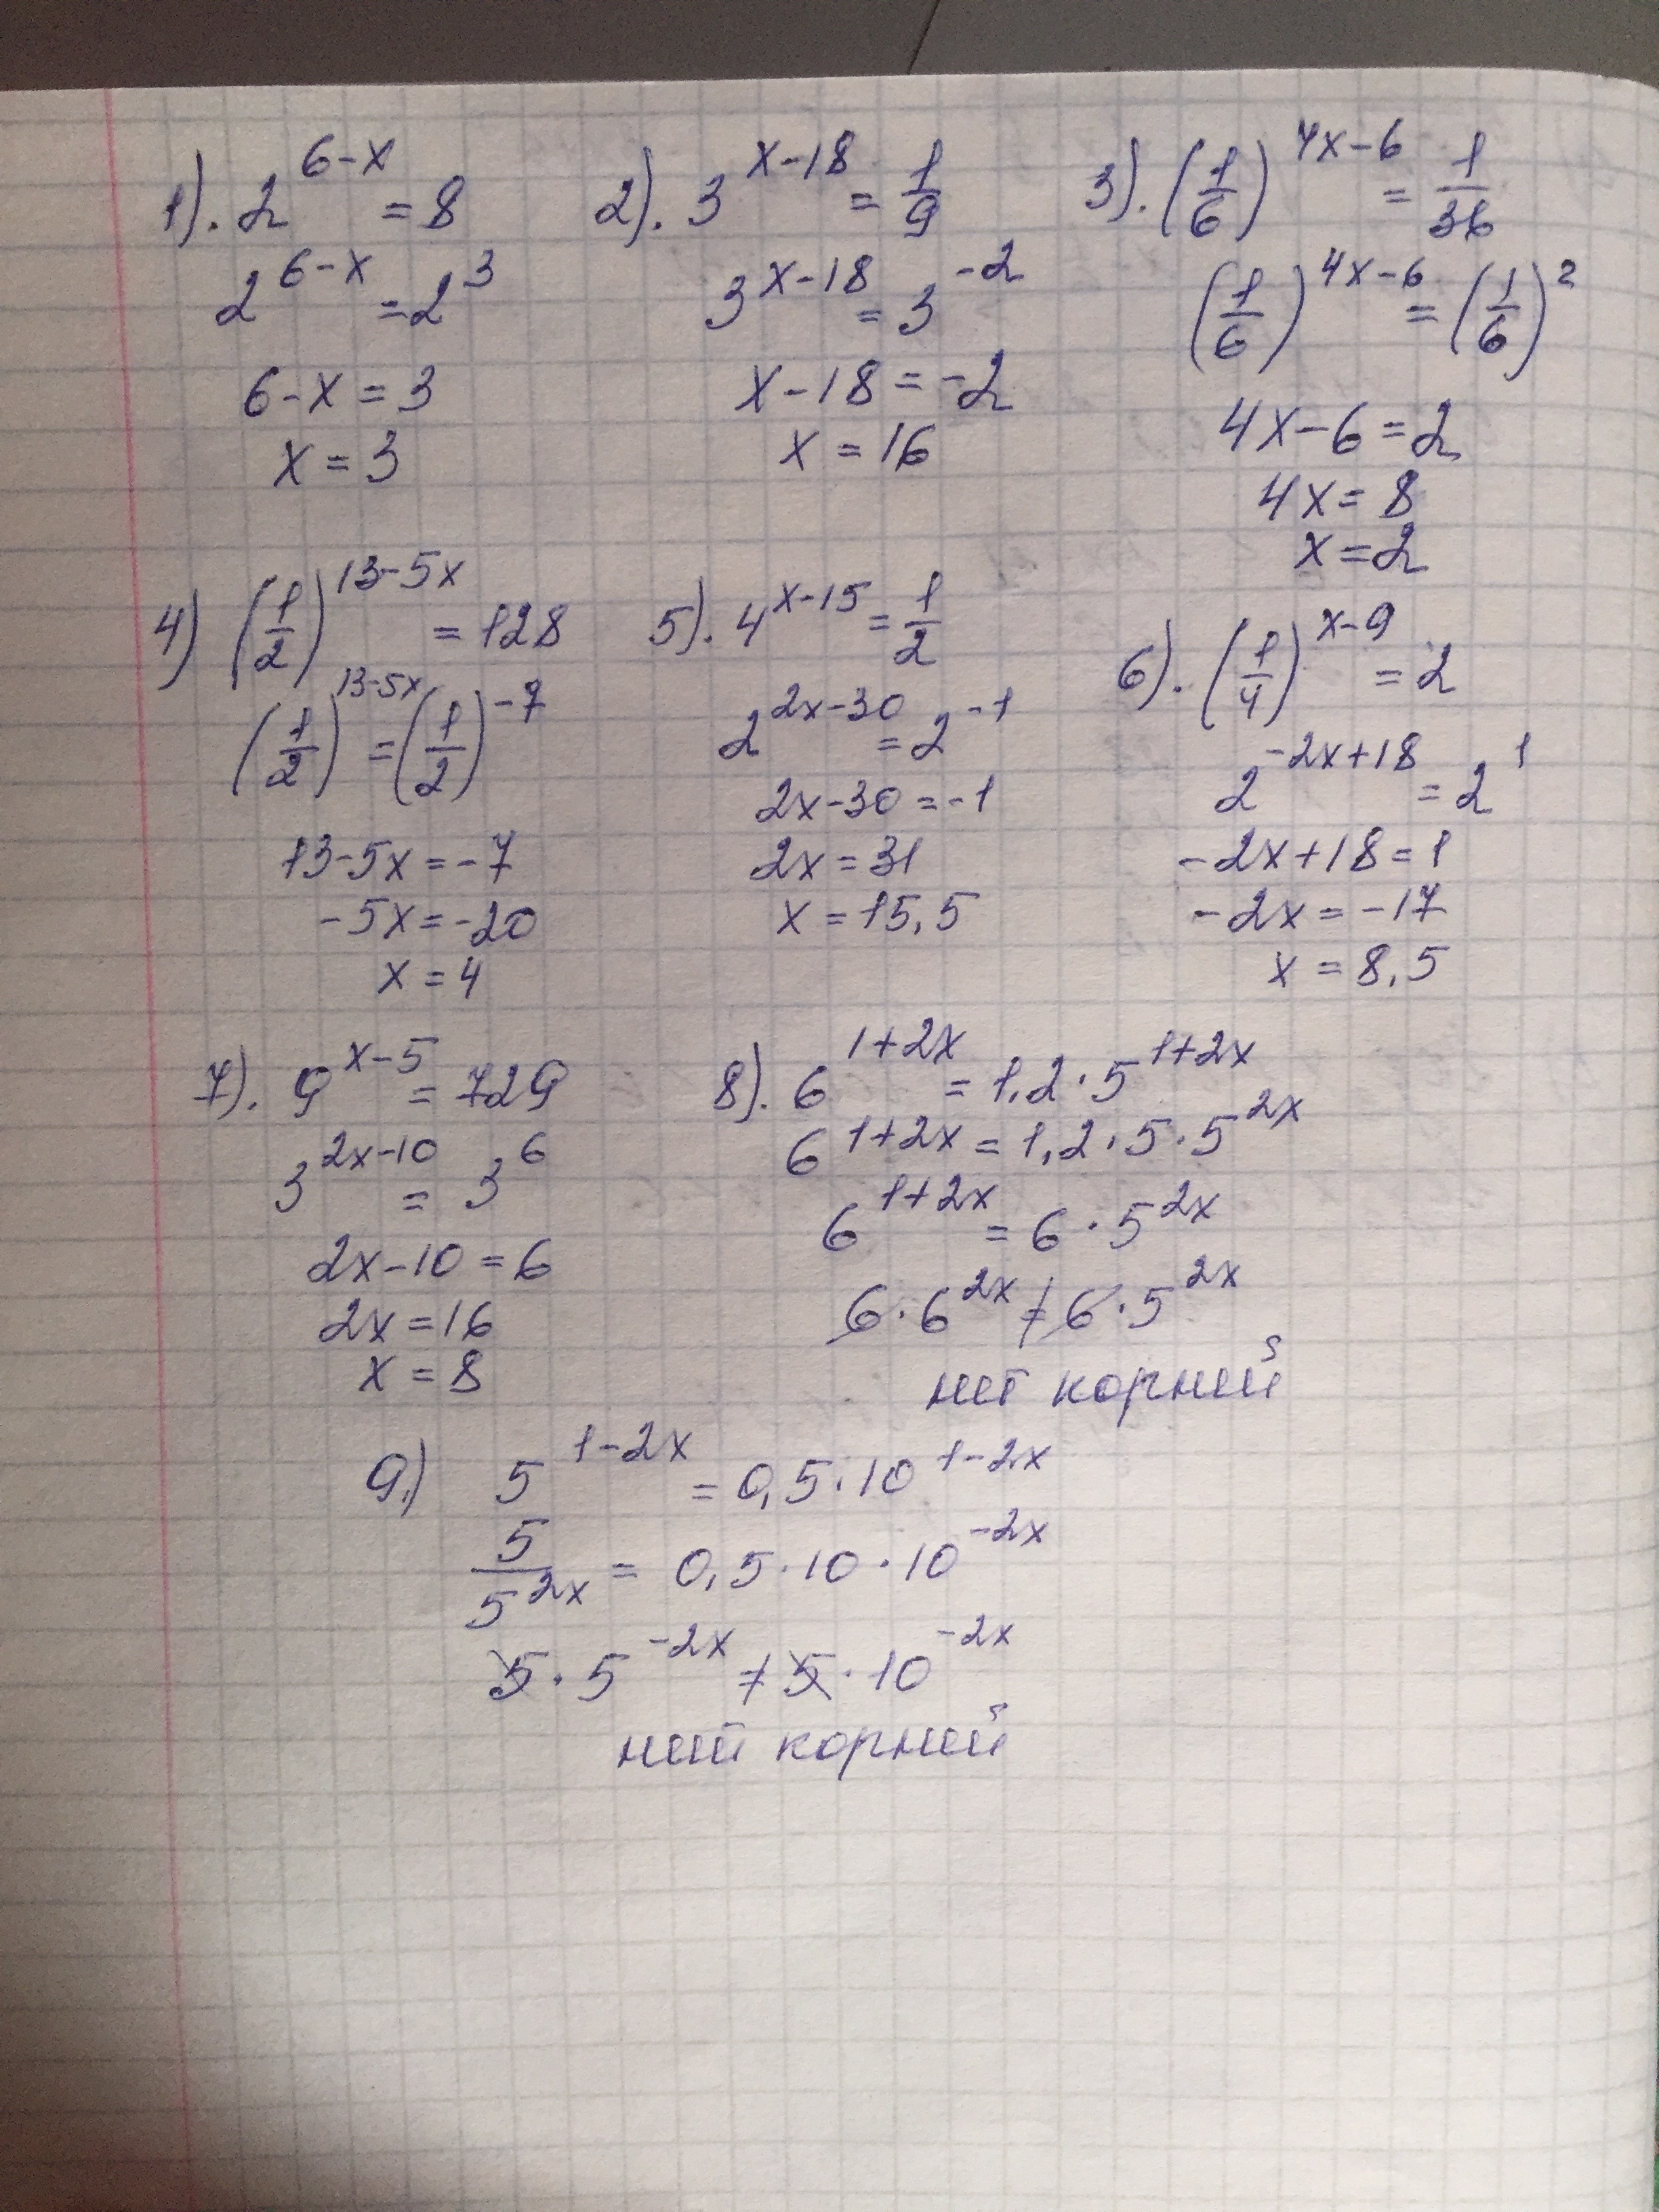 1). 2^(6-x) = 8
2^(6-x) = 2^3
6-x = 3
x = 3
2). 3^(x-18) = 1/9
3^(x-18) = 3^(-2)
x-18 = -2
x = 16
3). (1/6)^(4x-6) = 1/36
(1/6)^(4x-6) = (1/6)^2
4x-6 = 2
4x = 8
x = 2
4) (1/2)^(13-5x) = 128
(1/2)^(13-5x) = (1/2)^(-7)
13-5x = -7
-5x = -20
x = 4
5). 4^(x-15) = 1/2
2^(2x-30) = 2^(-1)
2x-30 = -1
2x = 31
x = 15,5
6). (1/4)^(x-9) = 2
2^(-2x+18) = 2^1
-2x+18 = 1
-2x = -17
x = 8,5
7). 9^(x-5) = 729
3^(2x-10) = 3^6
2x-10 = 6
2x = 16
x = 8
8). 6^(1+2x) = 1,2·5^(1+2x)
6^(1+2x) = 1,2·5·5^(2x)
6^(1+2x) = 6·5^(2x)
6·6^(2x) ≠ 6·5^(2x)
нет корней
9.) 5^(1-2x) = 0,5·10^(1-2x)
5/5^(2x) = 0,5·10·10^(-2x)
5·5^(-2x) ≠ 5·10^(-2x)
нет корней